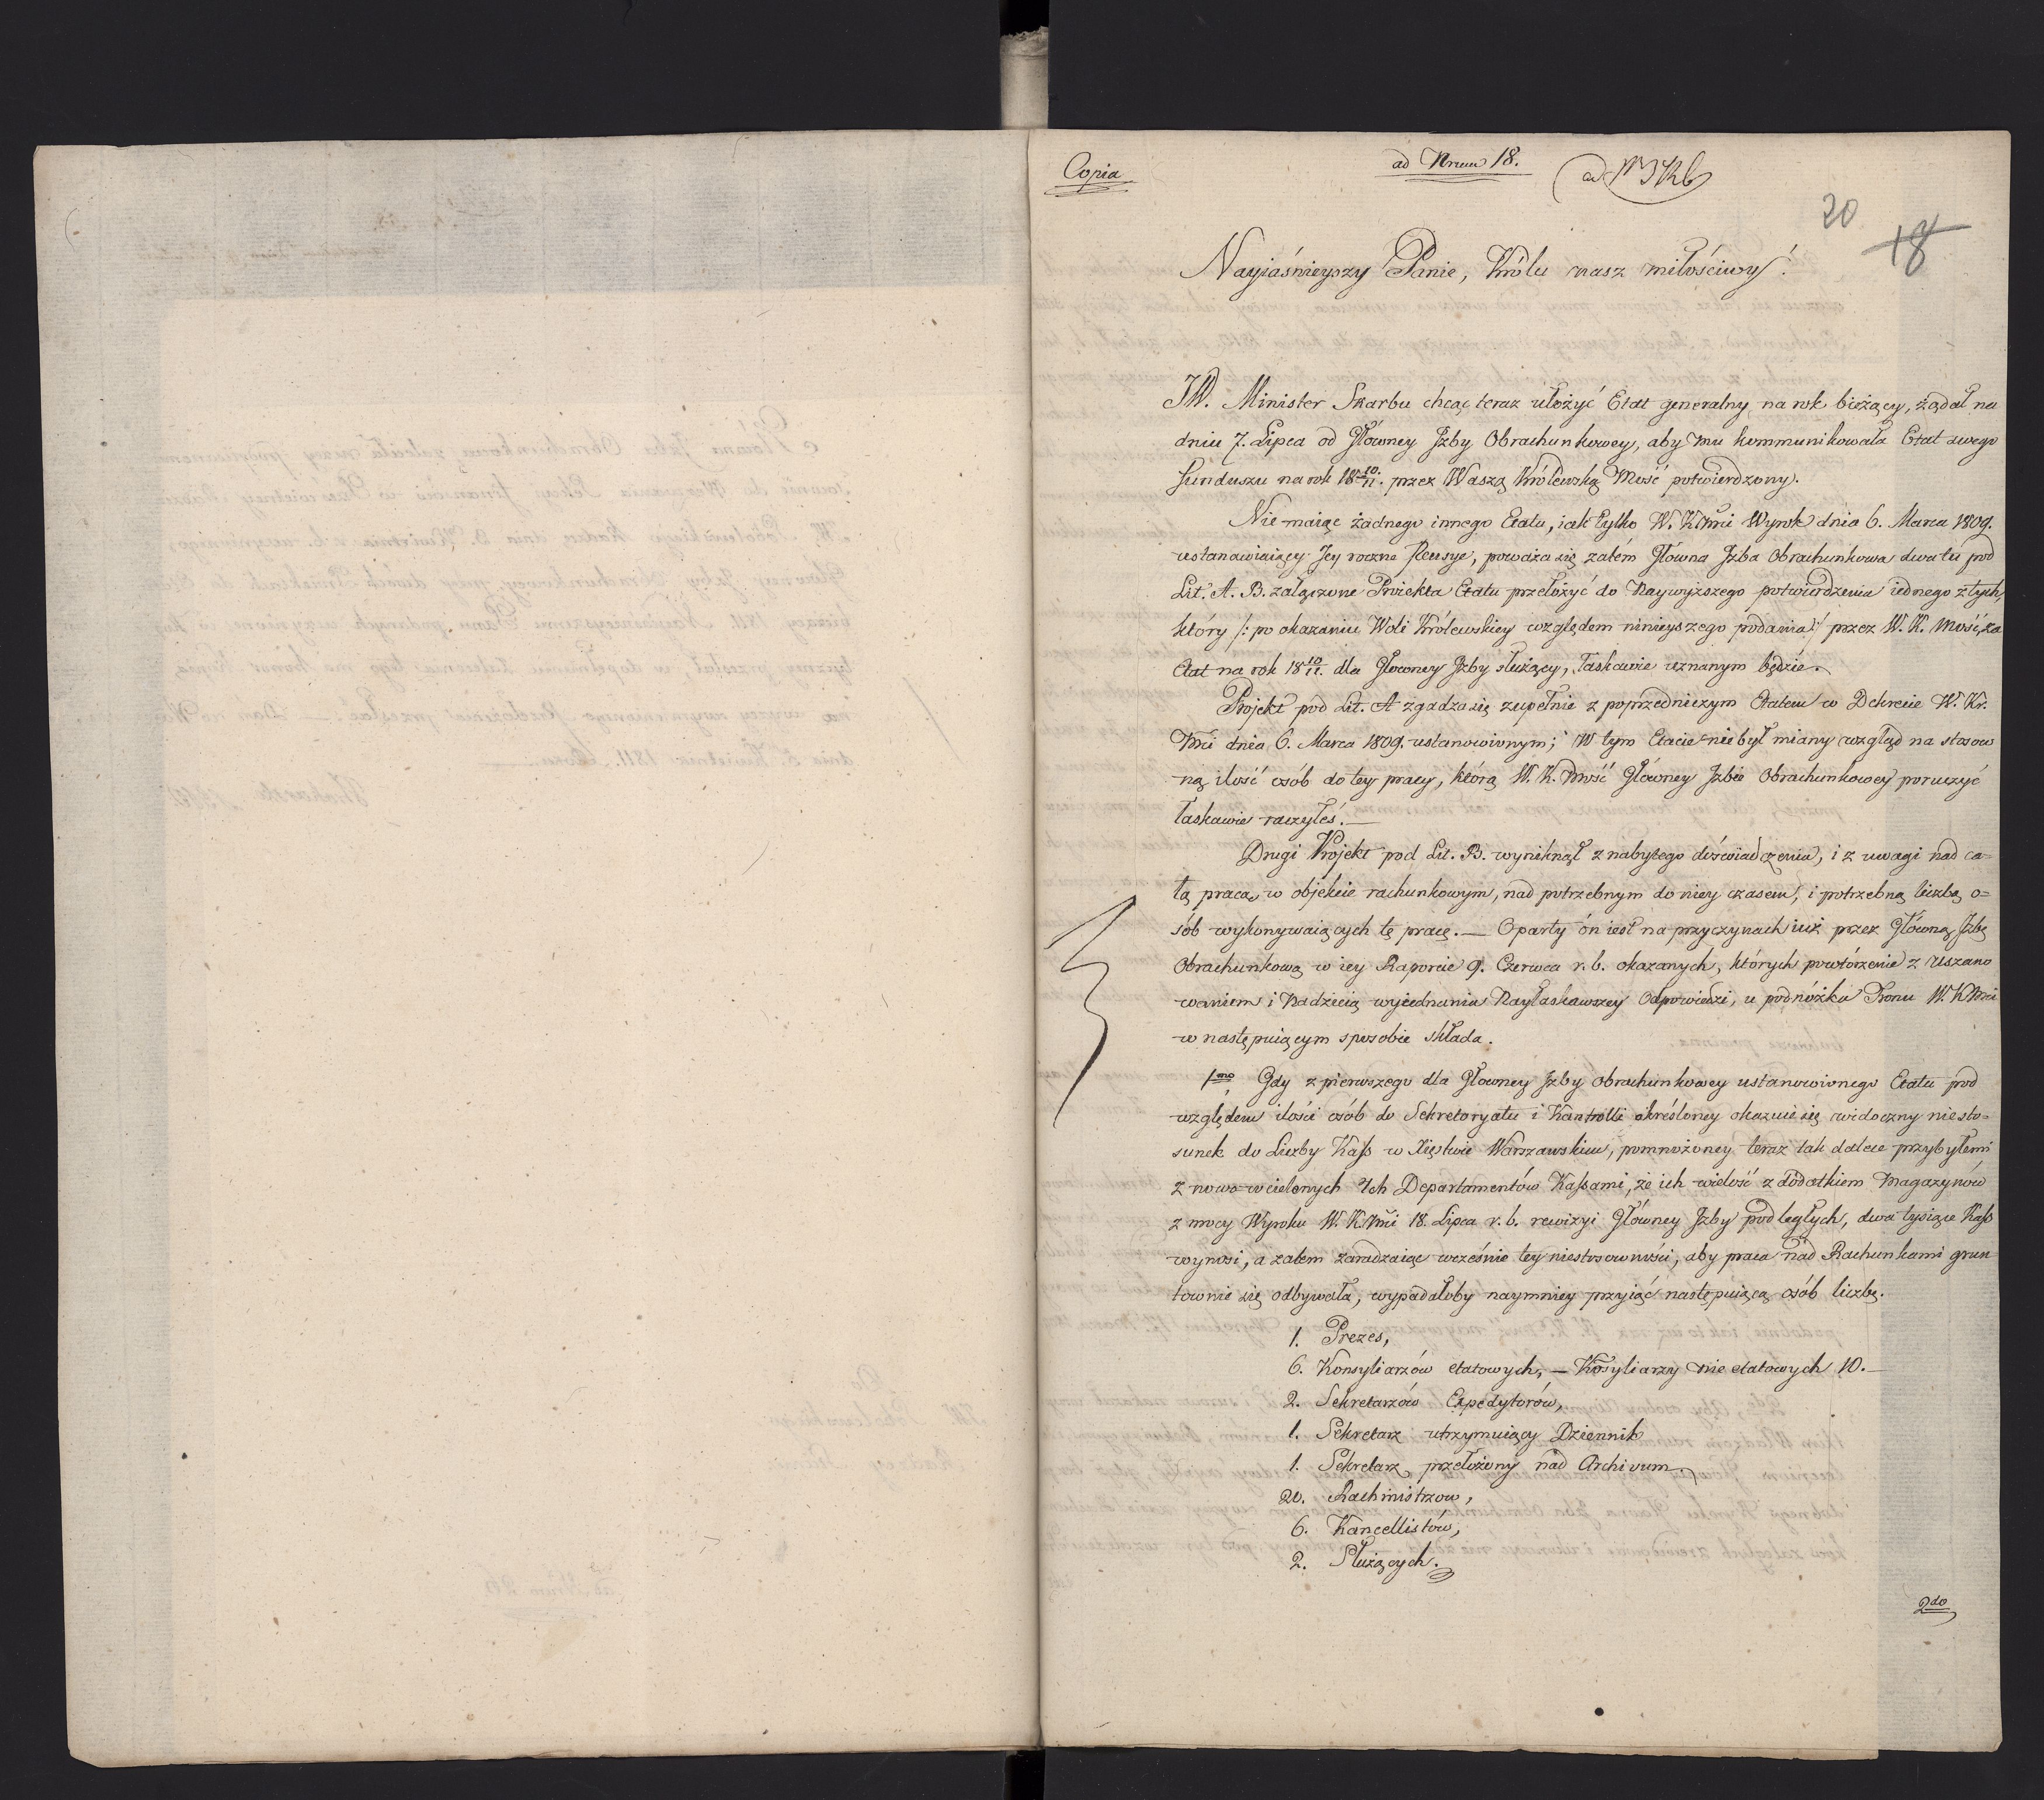 Copia
ad Nrum 18.
ad N
20
18
Nayiaśnieyszy Panie, Królu nasz miłościwy!
JW. Minister Skarbu chcąc teraz ułożyć Etat generalny na rok bieżący, żądał na
dniu 7. Lipca od Główney Jzby Obrachunkowey, aby mu kommunikowała Etat swego
funduszu na rok 18 10/11. przez Waszą Królewską Mość potwierdzony.
Nie maiąc żadnego innego Etatu, iak tylko W. K Mci Wyrok dnia 6. Marca 1809.
ustanawiaiący Jey roczne Pensye, poważa się zatém Główna Jzba Obrachunkowa dwa tu pod
Lit. A. B. załączone Proiekta Etatu przełożyć do Naywyższego potwierdzenia iednego z tych,
który /: po okazaniu Woli Królewskiey względem ninieyszego podania :/ przez W. K. Mość, za
Etat na rok 18 10/11. dla Główney Jzby służący, łaskawie uznanym będzie.
Projekt pod Lit. A zgadza się zupełnie z poprzedniczym Etatem w Dekrecie W. Kr.
Mci dnia 6. Marca 1809. ustanowionym; W tym Etacie nie był miany wzgląd na stosow
ną ilość osób do tey pracy, którą W. K. Mość Główney Jzbie Obrachunkowey poruczyć
łaskawie raczyłeś. —
Drugi Projekt pod Lit. B. wyniknął z nabytego doświadczenia, i z uwagi nad ca-
łą pracą w objekcie rachunkowym, nad potrzebnym do niey czasem, i potrzebną liczbą o=
sób wykonywaiących tę pracę. — Oparty ón iest na przyczynach iuż przez Główną Jzbę
Obrachunkową w iey Raporcie 9. Czerwca r. b. okazanych, których powtórzenie z uszano
waniem i nadzieią wyiednania Nayłaskawszey Odpowiedzi, u podnóżka Tronu W. K Mci
w następuiącym sposobie składa.
1mo Gdy z pierwszego dla Główney Jzby Obrachunkowey ustanowionego Etatu pod
względem ilości osób do Sekretoryatu i Kantrolli określoney okazuie się widoczny niesto=
sunek do Liczby Kass w Xięstwie Warszawskiem, pomnożoney teraz tak dalece przybyłemi
z nowo-wcielonych 4ch Departamentów Kassami, że ich wielość z dodatkiem Magazynów
z mocy Wyroku W. K Mci 18. Lipca r. b. rewizyi Główney Jzby podległych, dwa tysiące Kass
wynosi, a zatem zaradzaiąc wcześnie tey niestosowności, aby praca nad Rachunkami grun
townie się odbywała, wypadałoby naymniey przyiąć następuiącą osób liczbę.
1. Prezes,
6. Konsyliarzów etatowych, — Kosyliarzy nie etatowych 10. —
2. Sekretarzów Expedytorów,
1. Sekretarz utrzymuiący Dziennik
1. Sekretarz przełożony nad Archivum.
20. Rachmistrzow,
6. Kancellistów,
2. Służących.
2do